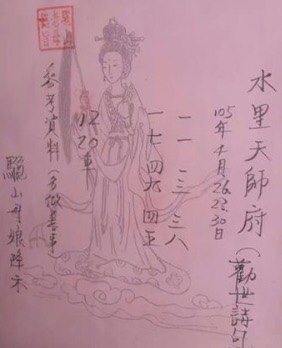 水里天師府(勸世詩句)
105年4月26.28.30日
二一 二三 三八
一七 四六 四五
1220車
參考資料(多做善事)
驪山母娘降示